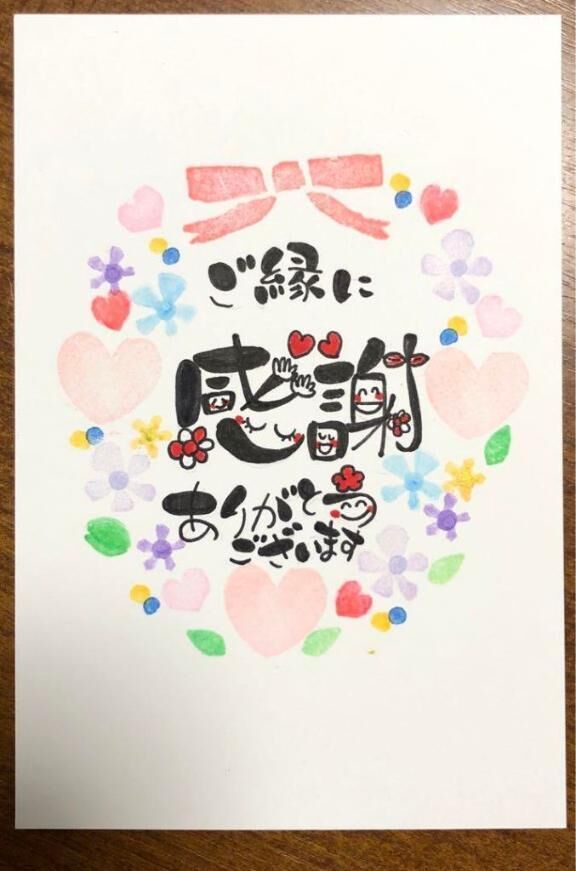 ご縁に
感謝
ありがとう
ございます